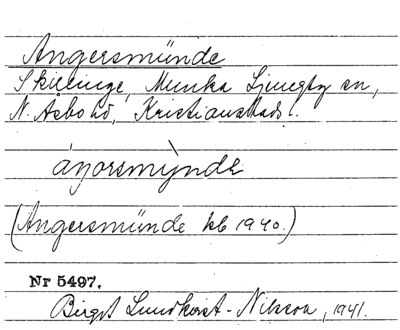 Angersmünde
Skillinge, Munka Ljungby sn,
N. Åsbo hd, Kristianstads l.
áŋorsmỳnde
(Angersmünde kb 1940.)
Nr 5497.
Birgit Lundkvist-Nilsson, 1941.